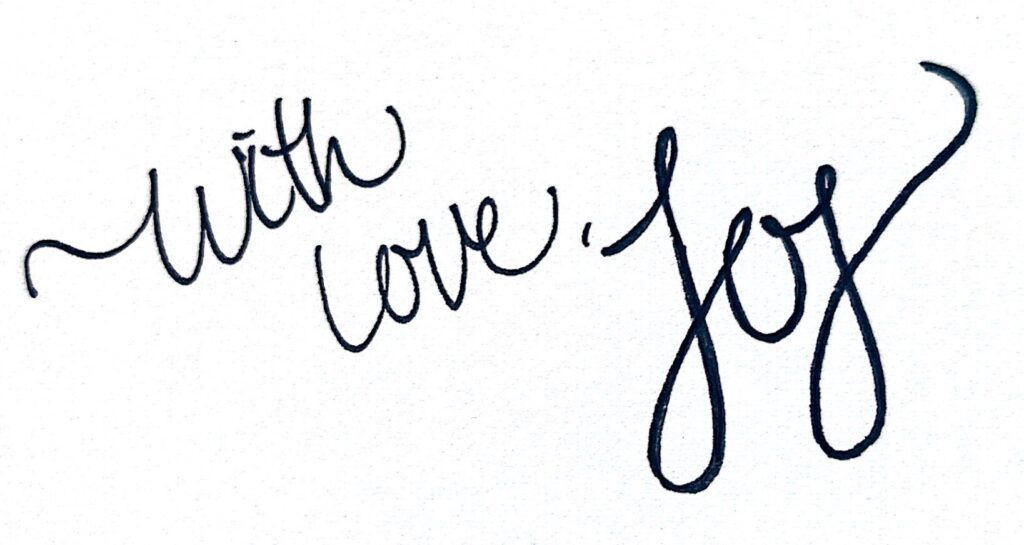 with
love, Joy